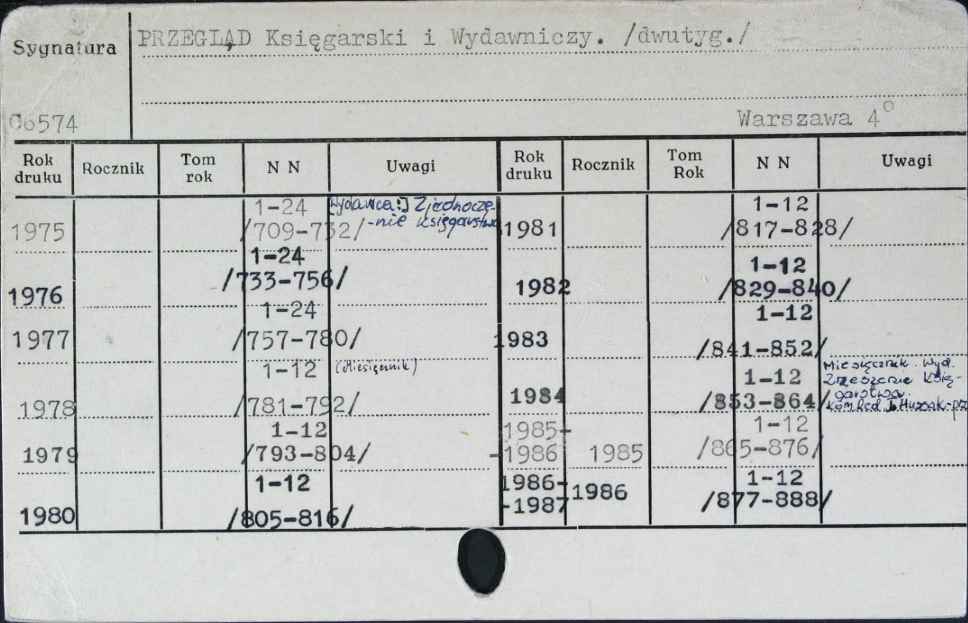 Sygnatura
PRZEGLĄD Księgarski i Wydawniczy. /dwutyg./
C6574
Warszawa 4°
Rok druku Rocznik Tom rok N N Uwagi
1975 1-24 /709-732/ [Wydawca:] Zjednocze-
-nie księgarstwa
1976 1-24 /733-756/
1977 1-24 /757-780/
1978 1-12 /781-792/ (Miesięcznik)
1979 1-12 /793-804/
1980 1-12 /805-816/
Rok druku Rocznik Tom Rok N N Uwagi
1981 1-12 /817-828/
1982 1-12 /829-840/
1983 1-12 /841-852/
1984 1-12 /853-864/ Miesięcznik. Wyd.
Zrzeszenie Księ-
garstwa.
Kom. Red.
1985-
-1986 1985 1-12 /865-876/
1986-
-1987 1986 1-12 /877-888/